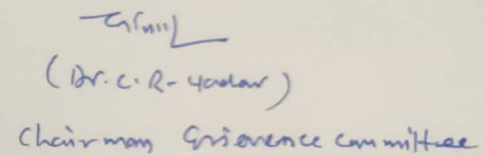 (Dr. C. R. Yadav)
Chairman Grievence Committee